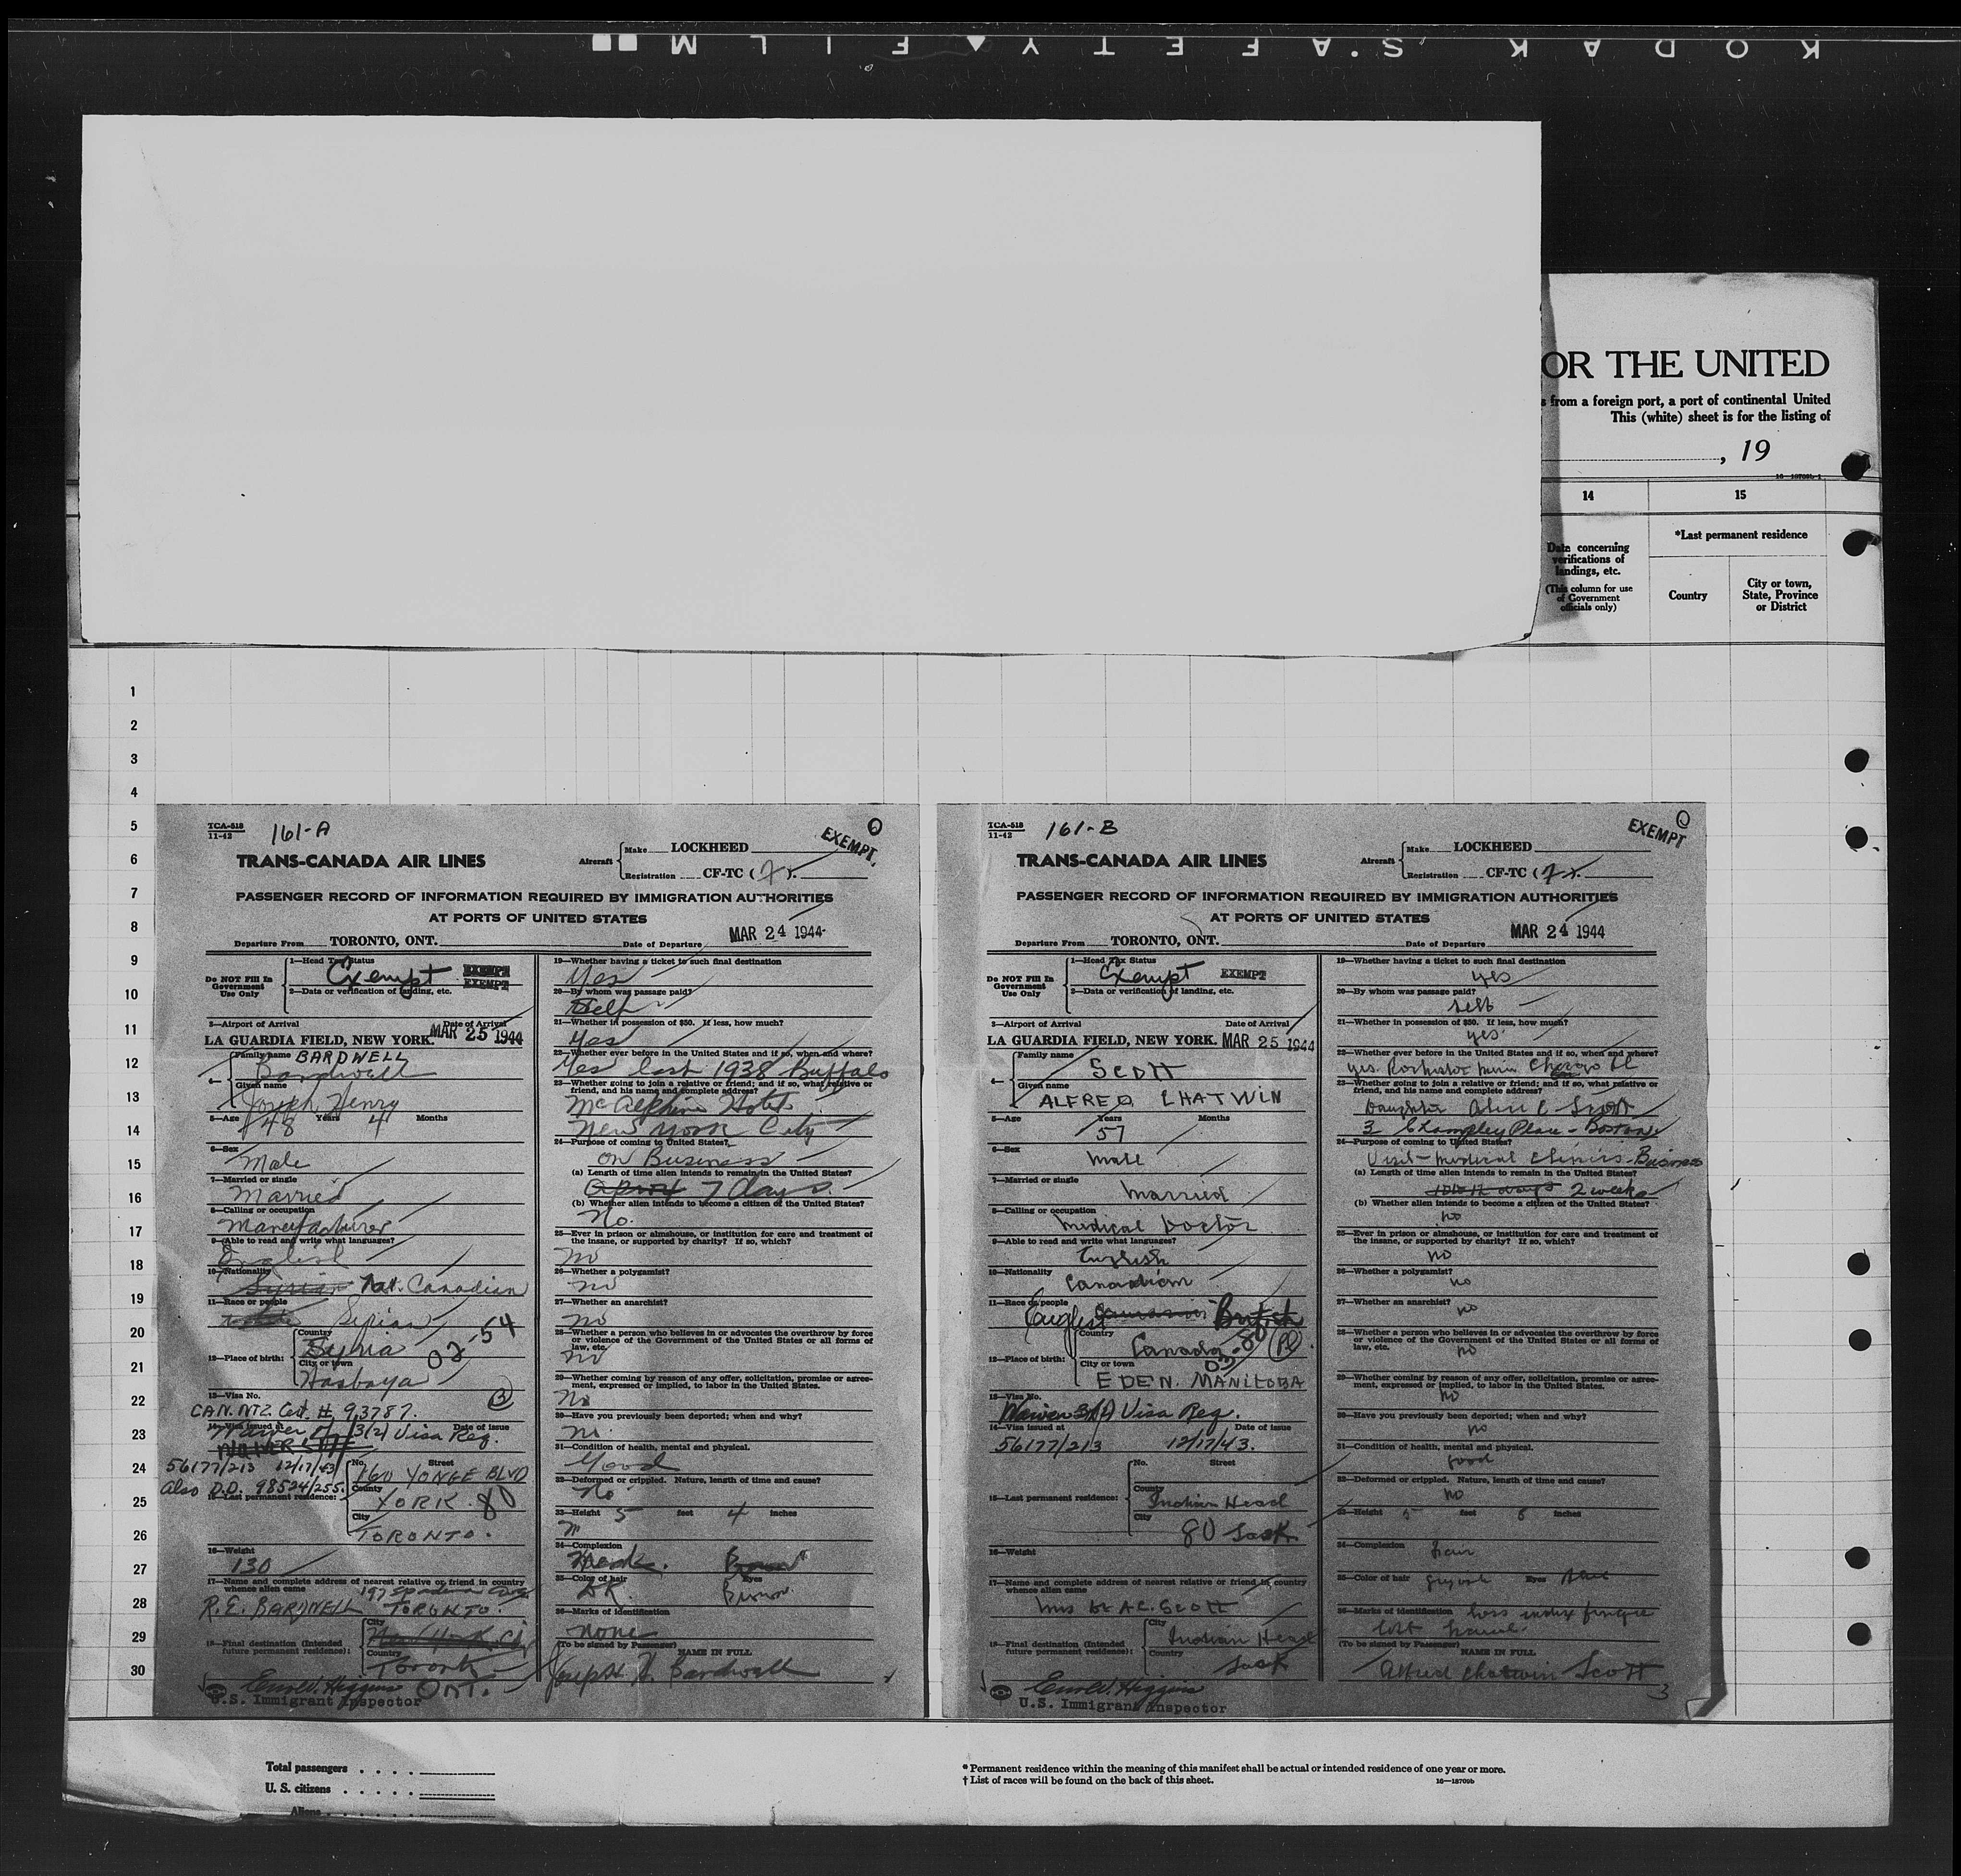 KODAK SAFETY FILM
OR THE UNITED
s from a foreign port, a port of continental United
This (white) sheet is for the listing of
, 19
14 15
Date concerning verifications of landings, etc.
(This column for use of Government officials only)
*Last permanent residence
Country
City or town, State, Province or District
1
2
3
4
5
6
7
8
9
10
11
12
13
14
15
16
17
18
19
20
21
22
23
24
25
26
27
28
29
30
TCA-518
11-42
161-A
EXEMPT.
TRANS-CANADA AIR LINES
Aircraft Make LOCKHEED
Registration CF-TC (
PASSENGER RECORD OF INFORMATION REQUIRED BY IMMIGRATION AUTHORITIES
AT PORTS OF UNITED STATES
MAR 24 1944
Departure From TORONTO, ONT. Date of Departure
Do NOT Fill In Government Use Only
1—Head Tax Status
Exempt EXEMPT
EXEMPT
2—Data or verification of landing, etc.
3—Airport of Arrival Date of Arrival
LA GUARDIA FIELD, NEW YORK. MAR 25 1944
4— Family name BARDWELL
Bardwell
Given name
Joseph Henry
5—Age 48 Years 4 Months
6—Sex
Male
7—Married or single
Married
8—Calling or occupation
Manufacturer
9—Able to read and write what languages?
English
10—Nationality
Syrian Nat. Canadian
11—Race or people
Syrian
12—Place of birth: Country
Syria 02-54
City or town
Hasbaya
13—Visa No.
CAN. NTZ. Cert. # 93787.
14—Visa issued at Date of Issue
Waiver 3(2) Visa Req.
56177/213 12/17/43
Also D.D. 98524/255.
15—Last permanent residence: No. Street
160 YONGE BLVD
County
YORK. 80
City
TORONTO.
16—Weight
130
17—Name and complete address of nearest relative or friend in country whence alien came
197 Spadina
R. E. BARDWELL TORONTO.
18—Final destination (Intended future permanent residence): City
New York City
Country
Toronto
ONT.
U.S. Immigrant Inspector
19—Whether having a ticket to such final destination
Yes
20—By whom was passage paid?
Self
21—Whether in possession of $50. If less, how much?
Yes
22—Whether ever before in the United States and if so, when and where?
Yes last 1938 Buffalo
23—Whether going to join a relative or friend; and if so, what relative or friend, and his name and complete address?
McAlphine Hotel
New York City
24—Purpose of coming to United States?
on Business
(a) Length of time alien intends to remain in the United States?
7 days
(b) Whether alien intends to become a citizen of the United States?
No.
25—Ever in prison or almshouse, or institution for care and treatment of the insane, or supported by charity? If so, which?
no
26—Whether a polygamist?
no
27—Whether an anarchist?
no
28—Whether a person who believes in or advocates the overthrow by force or violence of the Government of the United States or all forms of law, etc.
no
29—Whether coming by reason of any offer, solicitation, promise or agreement, expressed or implied, to labor in the United States.
No
30—Have you previously been deported; when and why?
no.
31—Condition of health, mental and physical.
Good
32—Deformed or crippled. Nature, length of time and cause?
No
33—Height 5 feet 4 inches
34—Complexion
35—Color of hair Eyes
DK Brown
36—Marks of identification
none
(To be signed by Passenger) NAME IN FULL
Joseph H. Bardwell
TCA-518
11-42
161-B
EXEMPT
TRANS-CANADA AIR LINES
Aircraft Make LOCKHEED
Registration CF-TC (
PASSENGER RECORD OF INFORMATION REQUIRED BY IMMIGRATION AUTHORITIES
AT PORTS OF UNITED STATES
MAR 24 1944
Departure From TORONTO, ONT. Date of Departure
Do NOT Fill In Government Use Only
1—Head Tax Status
Exempt EXEMPT
2—Data or verification of landing, etc.
3—Airport of Arrival Date of Arrival
LA GUARDIA FIELD, NEW YORK. MAR 25 1944
4— Family name
SCOTT
Given name
ALFRED CHATWIN
5—Age Years Months
57
6—Sex
Male
7—Married or single
Married
8—Calling or occupation
Medical Doctor
9—Able to read and write what languages?
English
10—Nationality
Canadian
11—Race or people
English British
12—Place of birth: Country
Canada - 80
City or town 03
EDEN. MANITOBA
13—Visa No.
Waiver Visa Req.
14—Visa issued at Date of Issue
56177/213 12/17/43.
15—Last permanent residence: No. Street
County
Indian Head
City
80 Sask
16—Weight
17—Name and complete address of nearest relative or friend in country whence alien came
Mrs Dr A.C. Scott
18—Final destination (Intended future permanent residence): City
Indian Head
Country
Sask
U.S. Immigrant Inspector
19—Whether having a ticket to such final destination
yes
20—By whom was passage paid?
self
21—Whether in possession of $50. If less, how much?
yes
22—Whether ever before in the United States and if so, when and where?
yes. Rochester Minn Chicago Ill
23—Whether going to join a relative or friend; and if so, what relative or friend, and his name and complete address?
Daughter Scott
3 Place - Boston
24—Purpose of coming to United States?
Visit - Medical Clinics - Business
(a) Length of time alien intends to remain in the United States?
2 weeks
(b) Whether alien intends to become a citizen of the United States?
no
25—Ever in prison or almshouse, or institution for care and treatment of the insane, or supported by charity? If so, which?
no
26—Whether a polygamist?
no
27—Whether an anarchist?
no
28—Whether a person who believes in or advocates the overthrow by force or violence of the Government of the United States or all forms of law, etc.
no
29—Whether coming by reason of any offer, solicitation, promise or agreement, expressed or implied, to labor in the United States.
no
30—Have you previously been deported; when and why?
no
31—Condition of health, mental and physical.
good
32—Deformed or crippled. Nature, length of time and cause?
no
33—Height 5 feet 8 inches
34—Complexion fair
35—Color of hair greyish Eyes
36—Marks of identification loss index finger
left hand.
(To be signed by Passenger) NAME IN FULL
Alfred Chatwin Scott
3
Total passengers
U. S. citizens
Aliens
* Permanent residence within the meaning of this manifest shall be actual or intended residence of one year or more.
† List of races will be found on the back of this sheet.